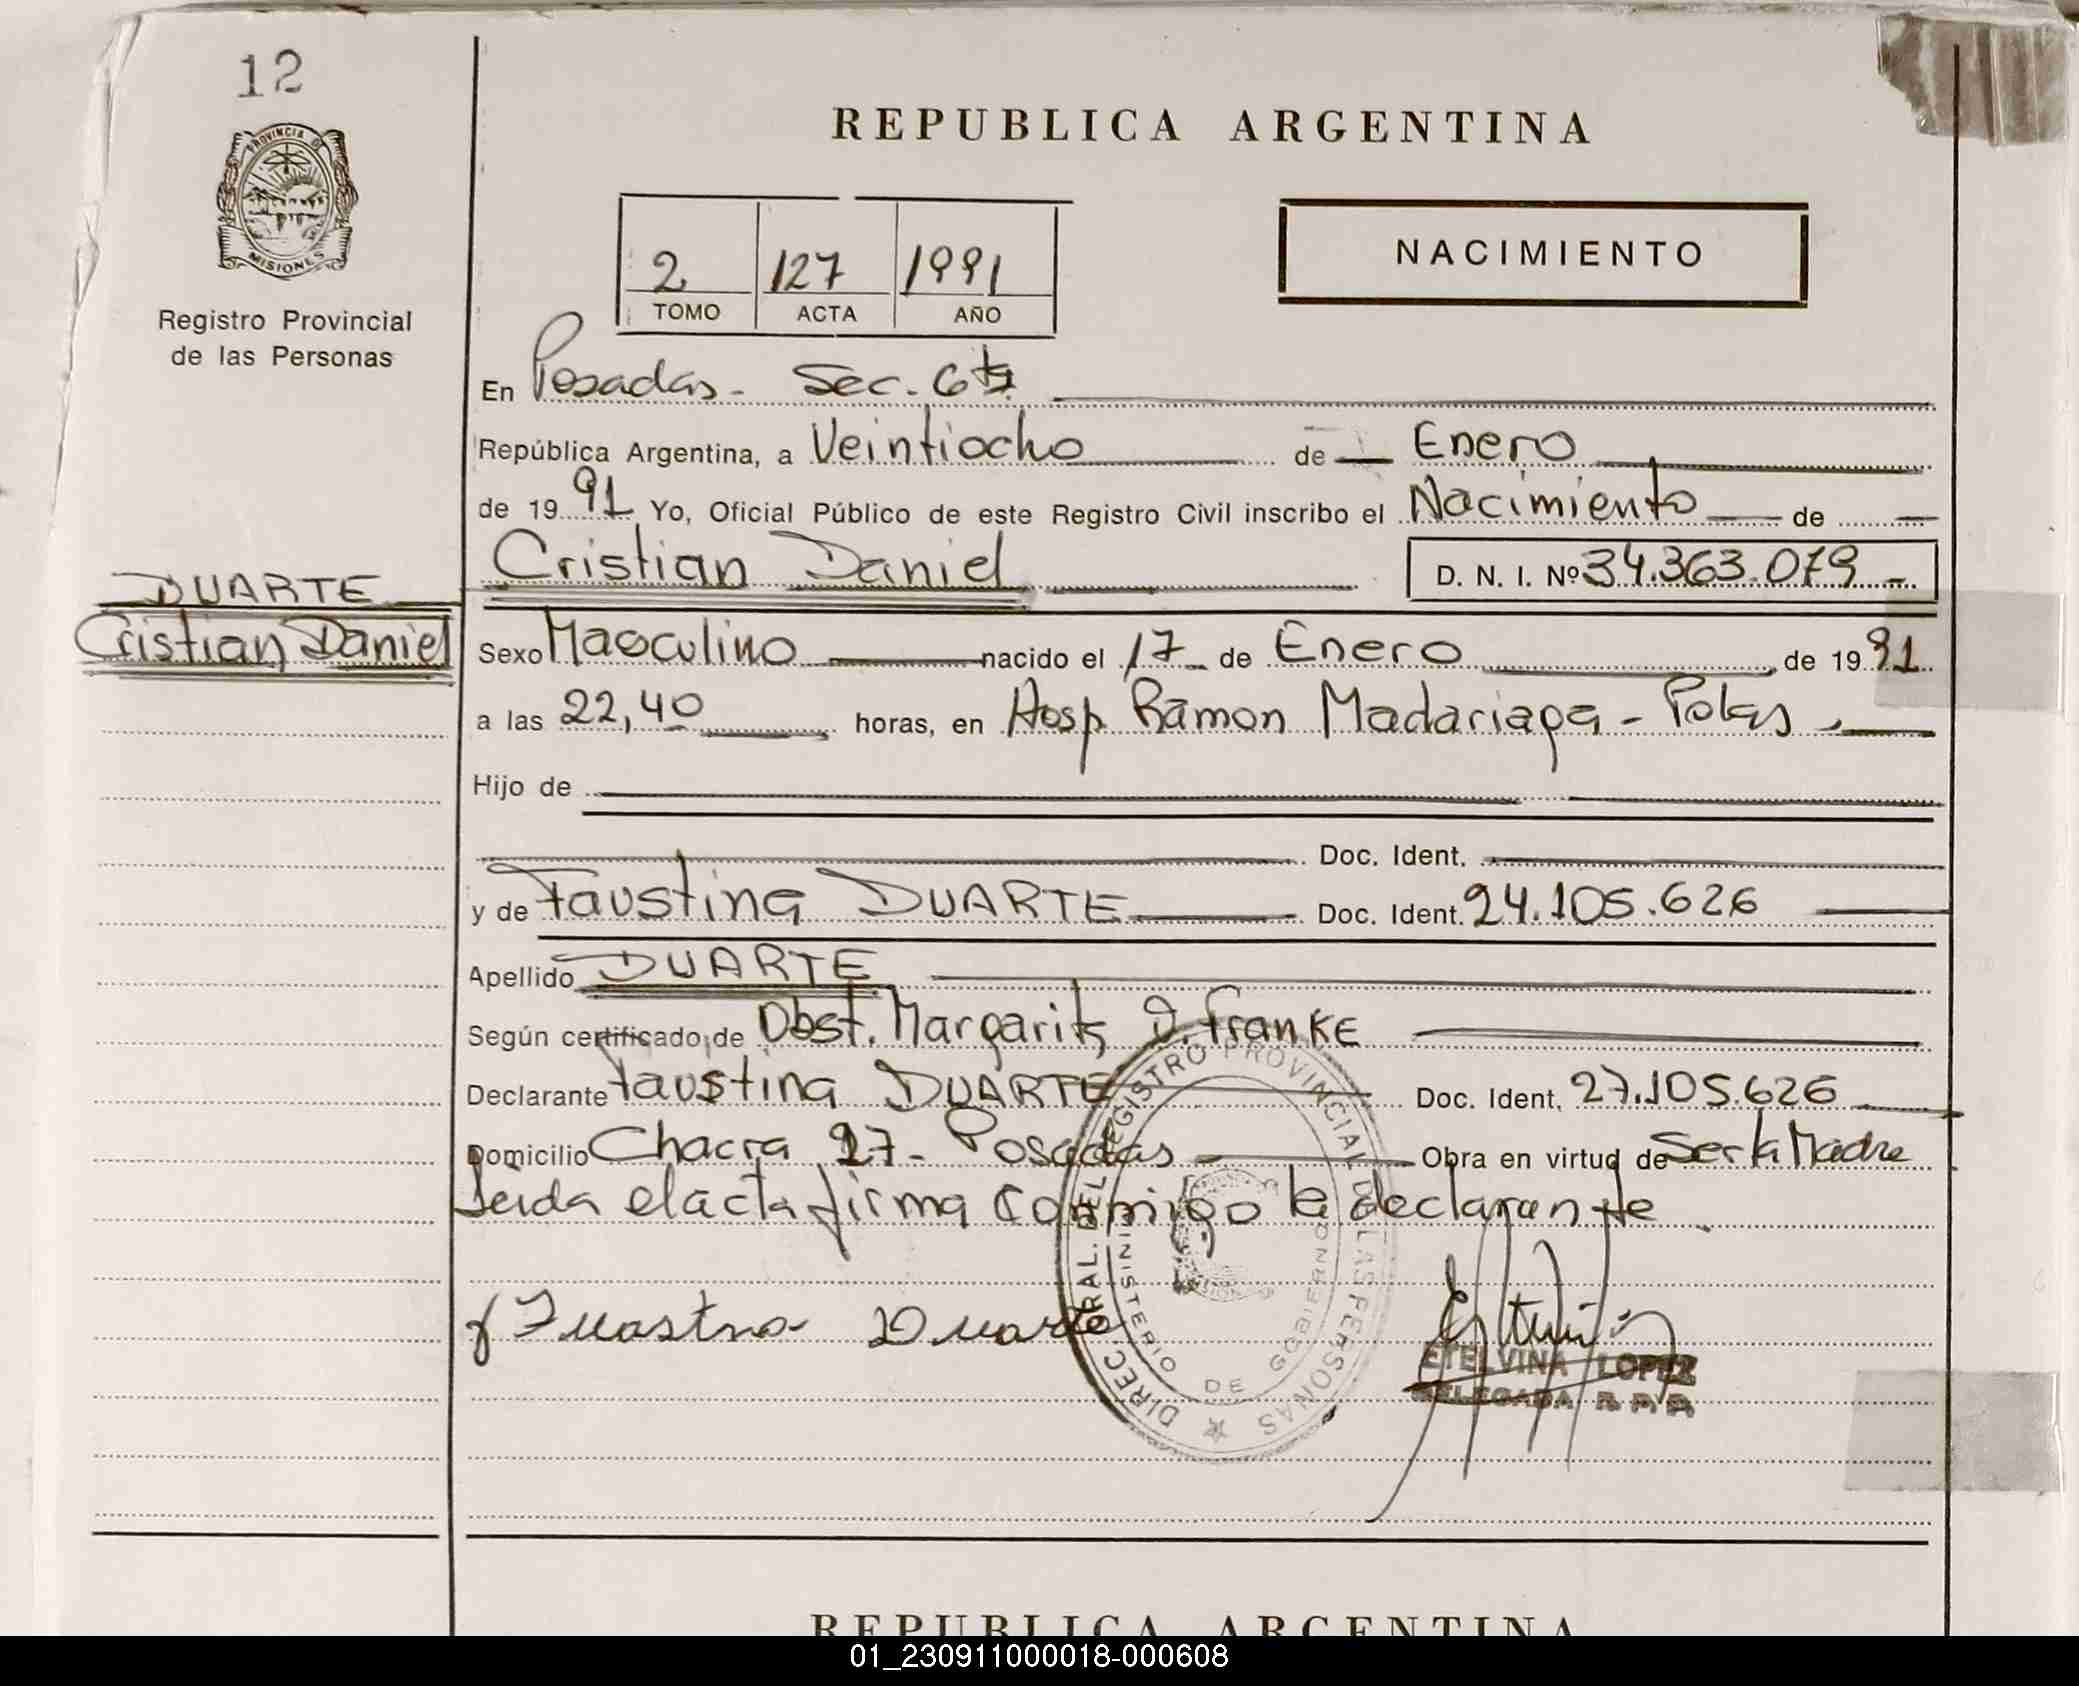 12
PROVINCIA DE
MISIONES
Registro Provincial
de las Personas
REPUBLICA ARGENTINA
2 127 1991
TOMO ACTA AÑO
NACIMIENTO
En Posadas - Sec. 6ta
República Argentina, a Veintiocho de Enero
de 1991 Yo, Oficial Público de este Registro Civil inscribo el Nacimiento de
Cristian Daniel D. N. I. Nº 34.363.079
DUARTE
Cristian Daniel
Sexo Masculino nacido el 17 de Enero de 1991
a las 22,40 horas, en Hosp Ramon Madariaga - Pdas
Hijo de
Doc. Ident.
y de Faustina DUARTE Doc. Ident. 24.105.626
Apellido DUARTE
Según certificado de Obst. Margarita D. Franke
Declarante Faustina DUARTE Doc. Ident. 27.105.626
Domicilio Chacra 27 - Posadas - Obra en virtud de Ser la Madre
Leida el acta firma conmigo la declarante
DIREC. GRAL. DEL REGISTRO PROVINCIAL DE LAS PERSONAS
MINISTERIO DE GOBIERNO
Fuastna Duarte
ETELVINA LOPEZ
DELEGADA R. P. P.
REPUBLICA ARGENTINA
01_230911000018-000608